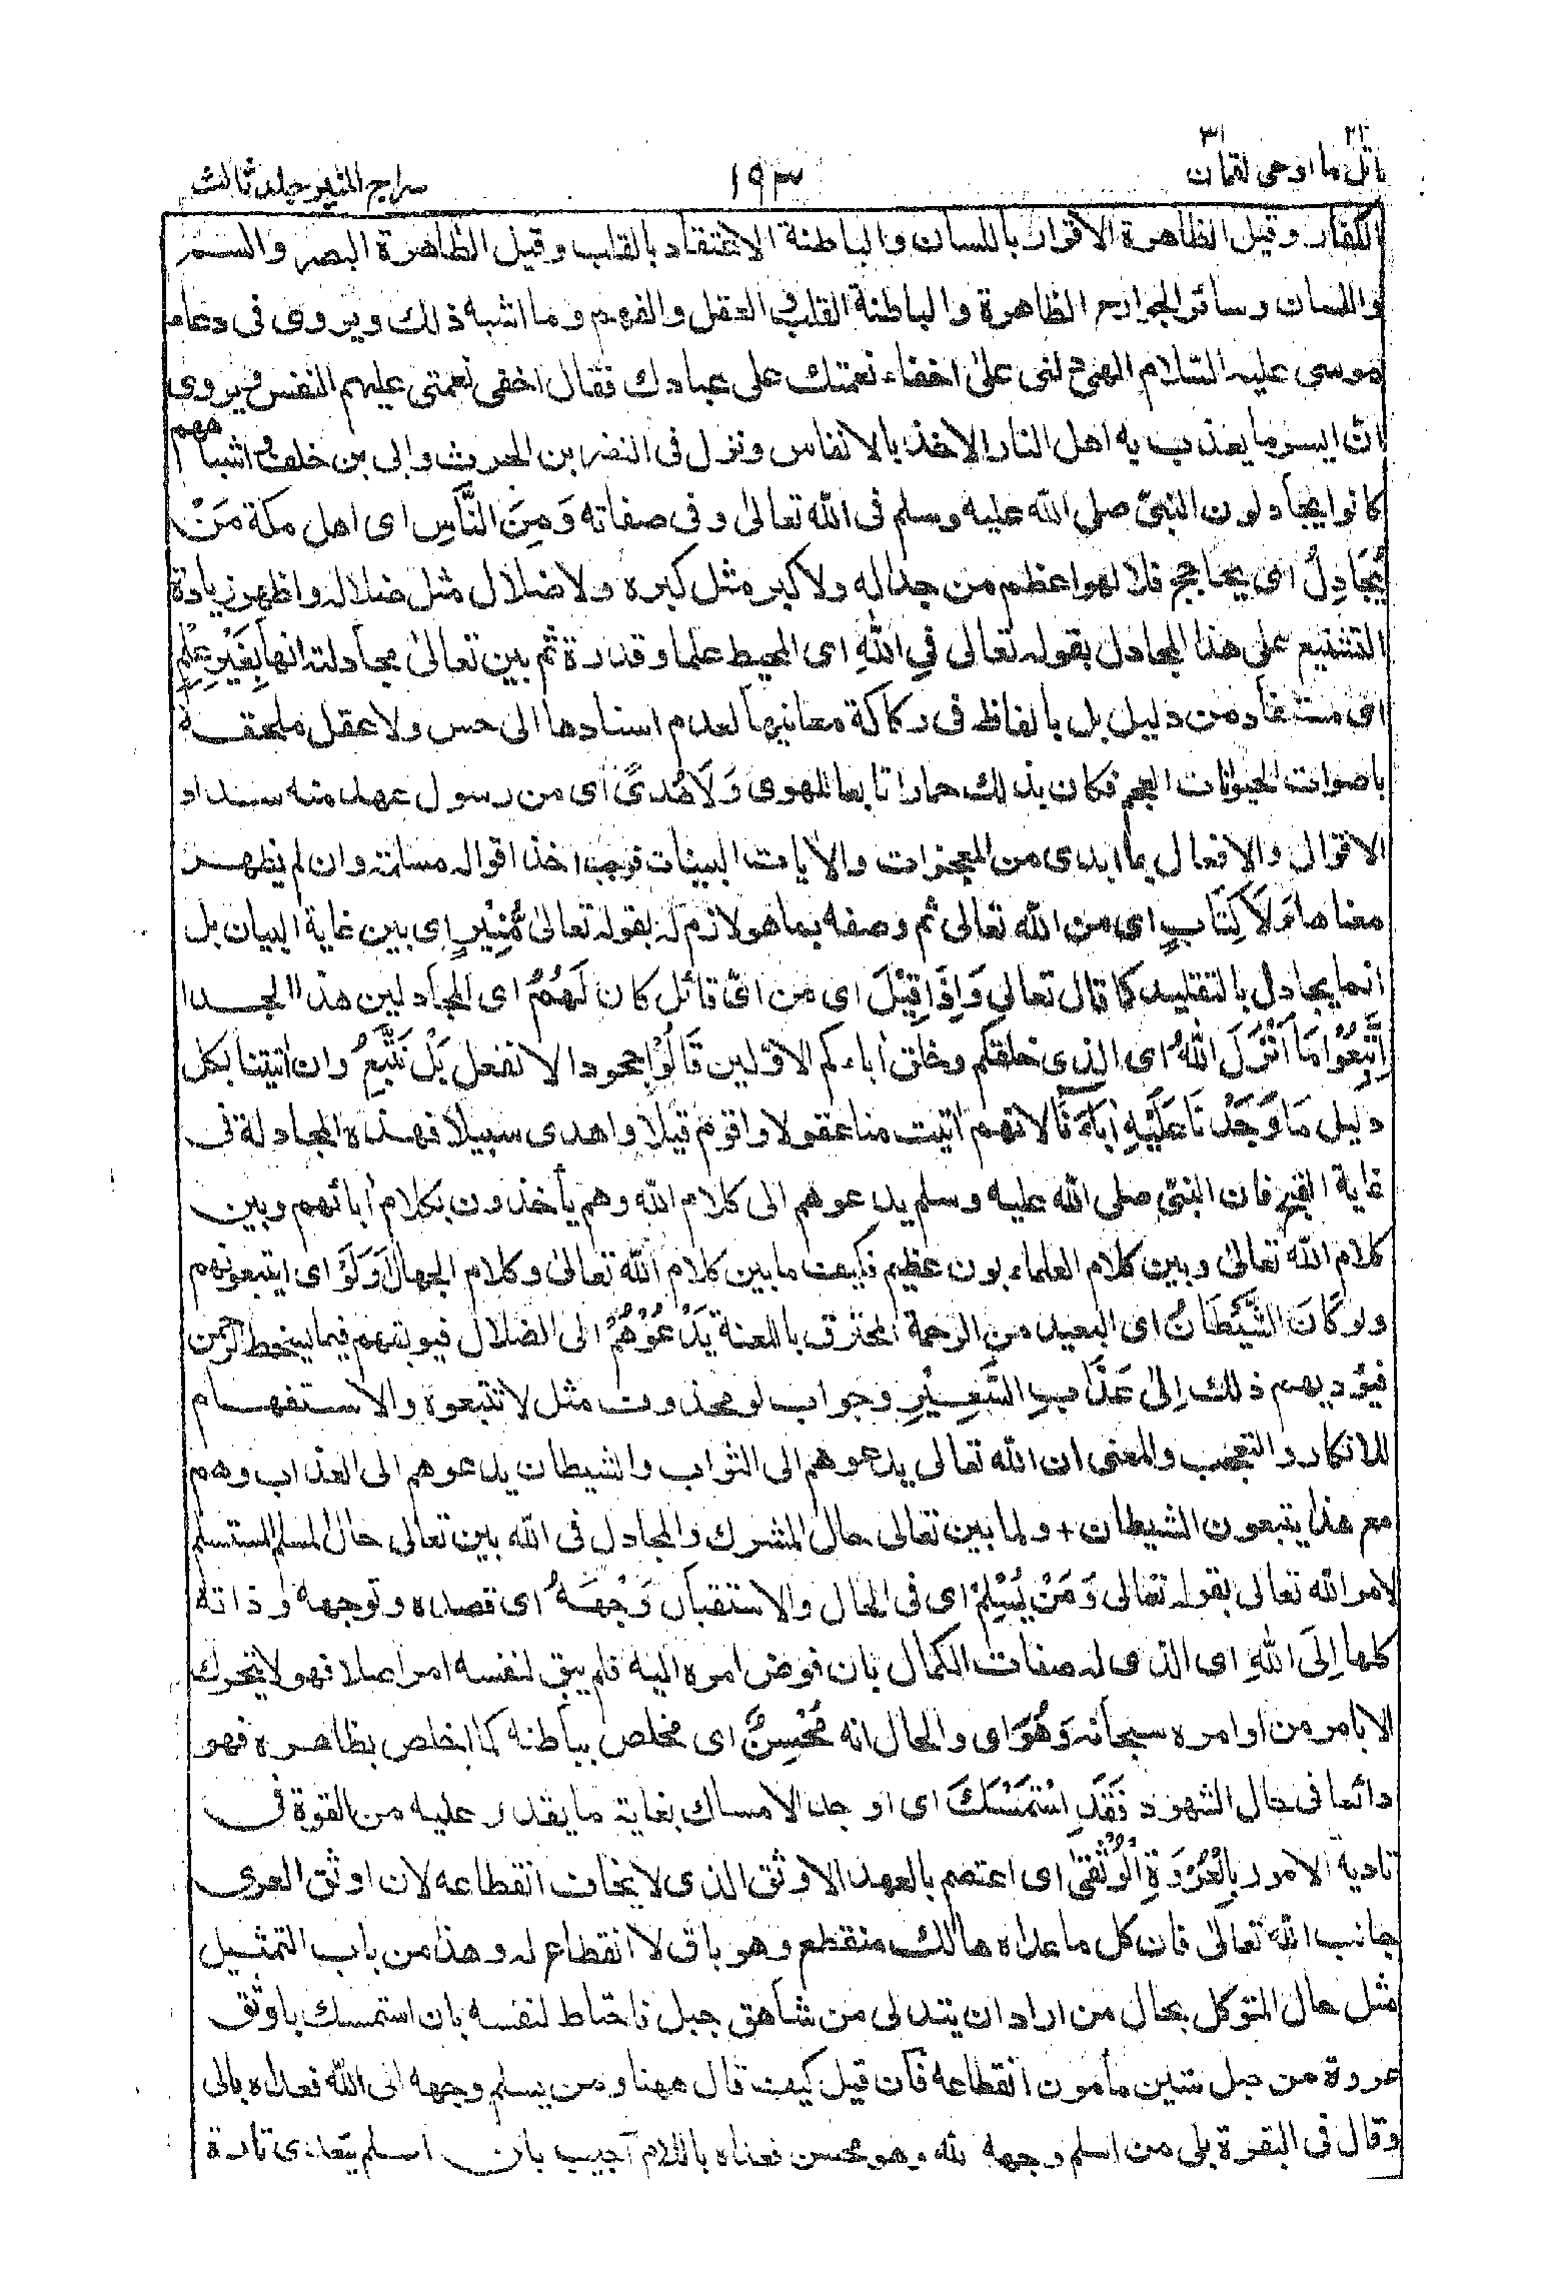 ٢١ ٣١
اتل ما اوحى لقمان ١٩٣ سراج المنير جلد ثالث
الكفار وقيل الظاهرة الاقرار باللسان والباطنة الاعتقاد بالقلب وقيل الظاهرة البصر والسمع
واللسان وسائر الجوارح الظاهرة والباطنة القلب و العقل والفهم وما اشبه ذلك ويروى فى دعاء
موسى عليه السّلام الهى دلنى على اخفاء نعمتك على عبادك فقال اخفى نعمتى عليهم النفس ويروى
انّ ايسر ما يعذب به اهل النار الاخذ بالانفاس ونزل فى النضر بن الحرث وابى بن خلف و اشباههم
كانوا يجادلون النبىّ صلى الله عليه وسلم فى الله تعالىٰ وفى صفاته وَمِنَ النَّاسِ اى اهل مكة مَنْ
يُّجَادِلُ اى يحاجج فلا لهو اعظم من جداله ولا كبر مثل كبره ولا ضلال مثل ضلاله واظهر زيادة
التشنيع على هذا المجادل بقوله تعالى فِي اللهِ اى المحيط علما وقدرة ثم بين تعالىٰ مجادلته انها بِغَيْرِ عِلْمٍ
اى مستفاد من دليل بل بالفاظ فى ركاكة معانيها لعدم اسنادها الى حس ولا عقل ملحقة
باصوات الحيوانات العجم فكان بذلك حمارا تابعا للهوى وَلَا هُدىً اى من رسول عهد منه سداد
الاقوال والافعال بما ابدى من المعجزات والايات البينات فوجب اخذ اقواله مسلمة وان لم يظهر
معناها وَلَا كِتَابٍ اى من الله تعالى ثم وصفه بما هو لازم له بقوله تعالىٰ مُّنِيْرٍ اى بين غاية البيان بل
انما يجادل بالتقليد كما قال تعالى وَاِذَا قِيْلَ اى من اىّ قائل كان لَهُمُ اى المجادلين هذا الجدال
اتَّبِعُوْا مَا اَنْزَلَ اللهُ اى الذى خلقكم وخلق اٰباءكم الاوّلين قَالُوْا جحودا لا نفعل بَلْ نَتَّبِعُ وان اتيتنا بكل
دليل مَا وَجَدْنَا عَلَيْهِ اٰبَاءَنَا لانهم اثبت منا عقولا واقوم قيلا واهدى سبيلا فهذه المجادلة فى
غاية القبح فان النبىّ صلى الله عليه وسلم يدعوهم الى كلام الله وهم يأخذون بكلام اٰبائهم وبين
كلام الله تعالىٰ وبين كلام العلماء بون عظيم فكيف ما بين كلام الله تعالىٰ وكلام الجهال اَوَلَوْ اى ايتبعونهم
ولو كَانَ الشَّيْطَانُ اى البعيد من الرحمة المحترق باللعنة يَدْعُوْهُمْ الى الضلال فيوبقهم فيما يسخط الرحمن
فيؤديهم ذلك اِلىٰ عَذَابِ السَّعِيْرِ وجواب لو محذوف مثل لا تتبعوه والاستفهام
للانكار والتعجب والمعنى ان الله تعالى يدعوهم الى الثواب والشيطان يدعوهم الى العذاب وهم
مع هذا يتبعون الشيطان + ولما بين تعالى حال المشرك والمجادل فى الله بين تعالى حال المسلم المستسلم
لامر الله تعالى بقوله تعالى وَمَنْ يُّسْلِمْ اى فى الحال والاستقبال وَجْهَهٗ اى قصده وتوجهه وذاته
كلها اِلَى اللهِ اى الذى له صفات الكمال بان فوض امره اليه فلم يبق لنفسه امر اصلا فهو لا يتحرك
الا بامر من اوامره سبحانه وَهُوَ اى والحال انه مُحْسِنٌ اى مخلص بباطنه كما اخلص بظاهره فهو
دائما فى حال الشهود فَقَدِ اسْتَمْسَكَ اى اوجد الامساك بغاية ما يقدر عليه من القوة فى
تادية الامور بِالْعُرْوَةِ الْوُثْقىٰ اى اعتصم بالعهد الاوثق الذى لا يخاف انقطاعه لان اوثق العرى
جانب الله تعالىٰ فان كل ما عداه هالك منقطع وهو باق لا انقطاع له وهذا من باب التمثيل
مثل حال المتوكل بحال من اراد ان يتدلى من شاهق جبل فاحتاط لنفسه بان استمسك باوثق
عروة من حبل متين مأمون انقطاعه فان قيل كيف قال ههنا ومن يسلم وجهه الى الله فعداه بالى
وقال فى البقرة بلى من اسلم وجهه لله وهو محسن فعداه باللام اجيب بان اسلم يتعدى تارة